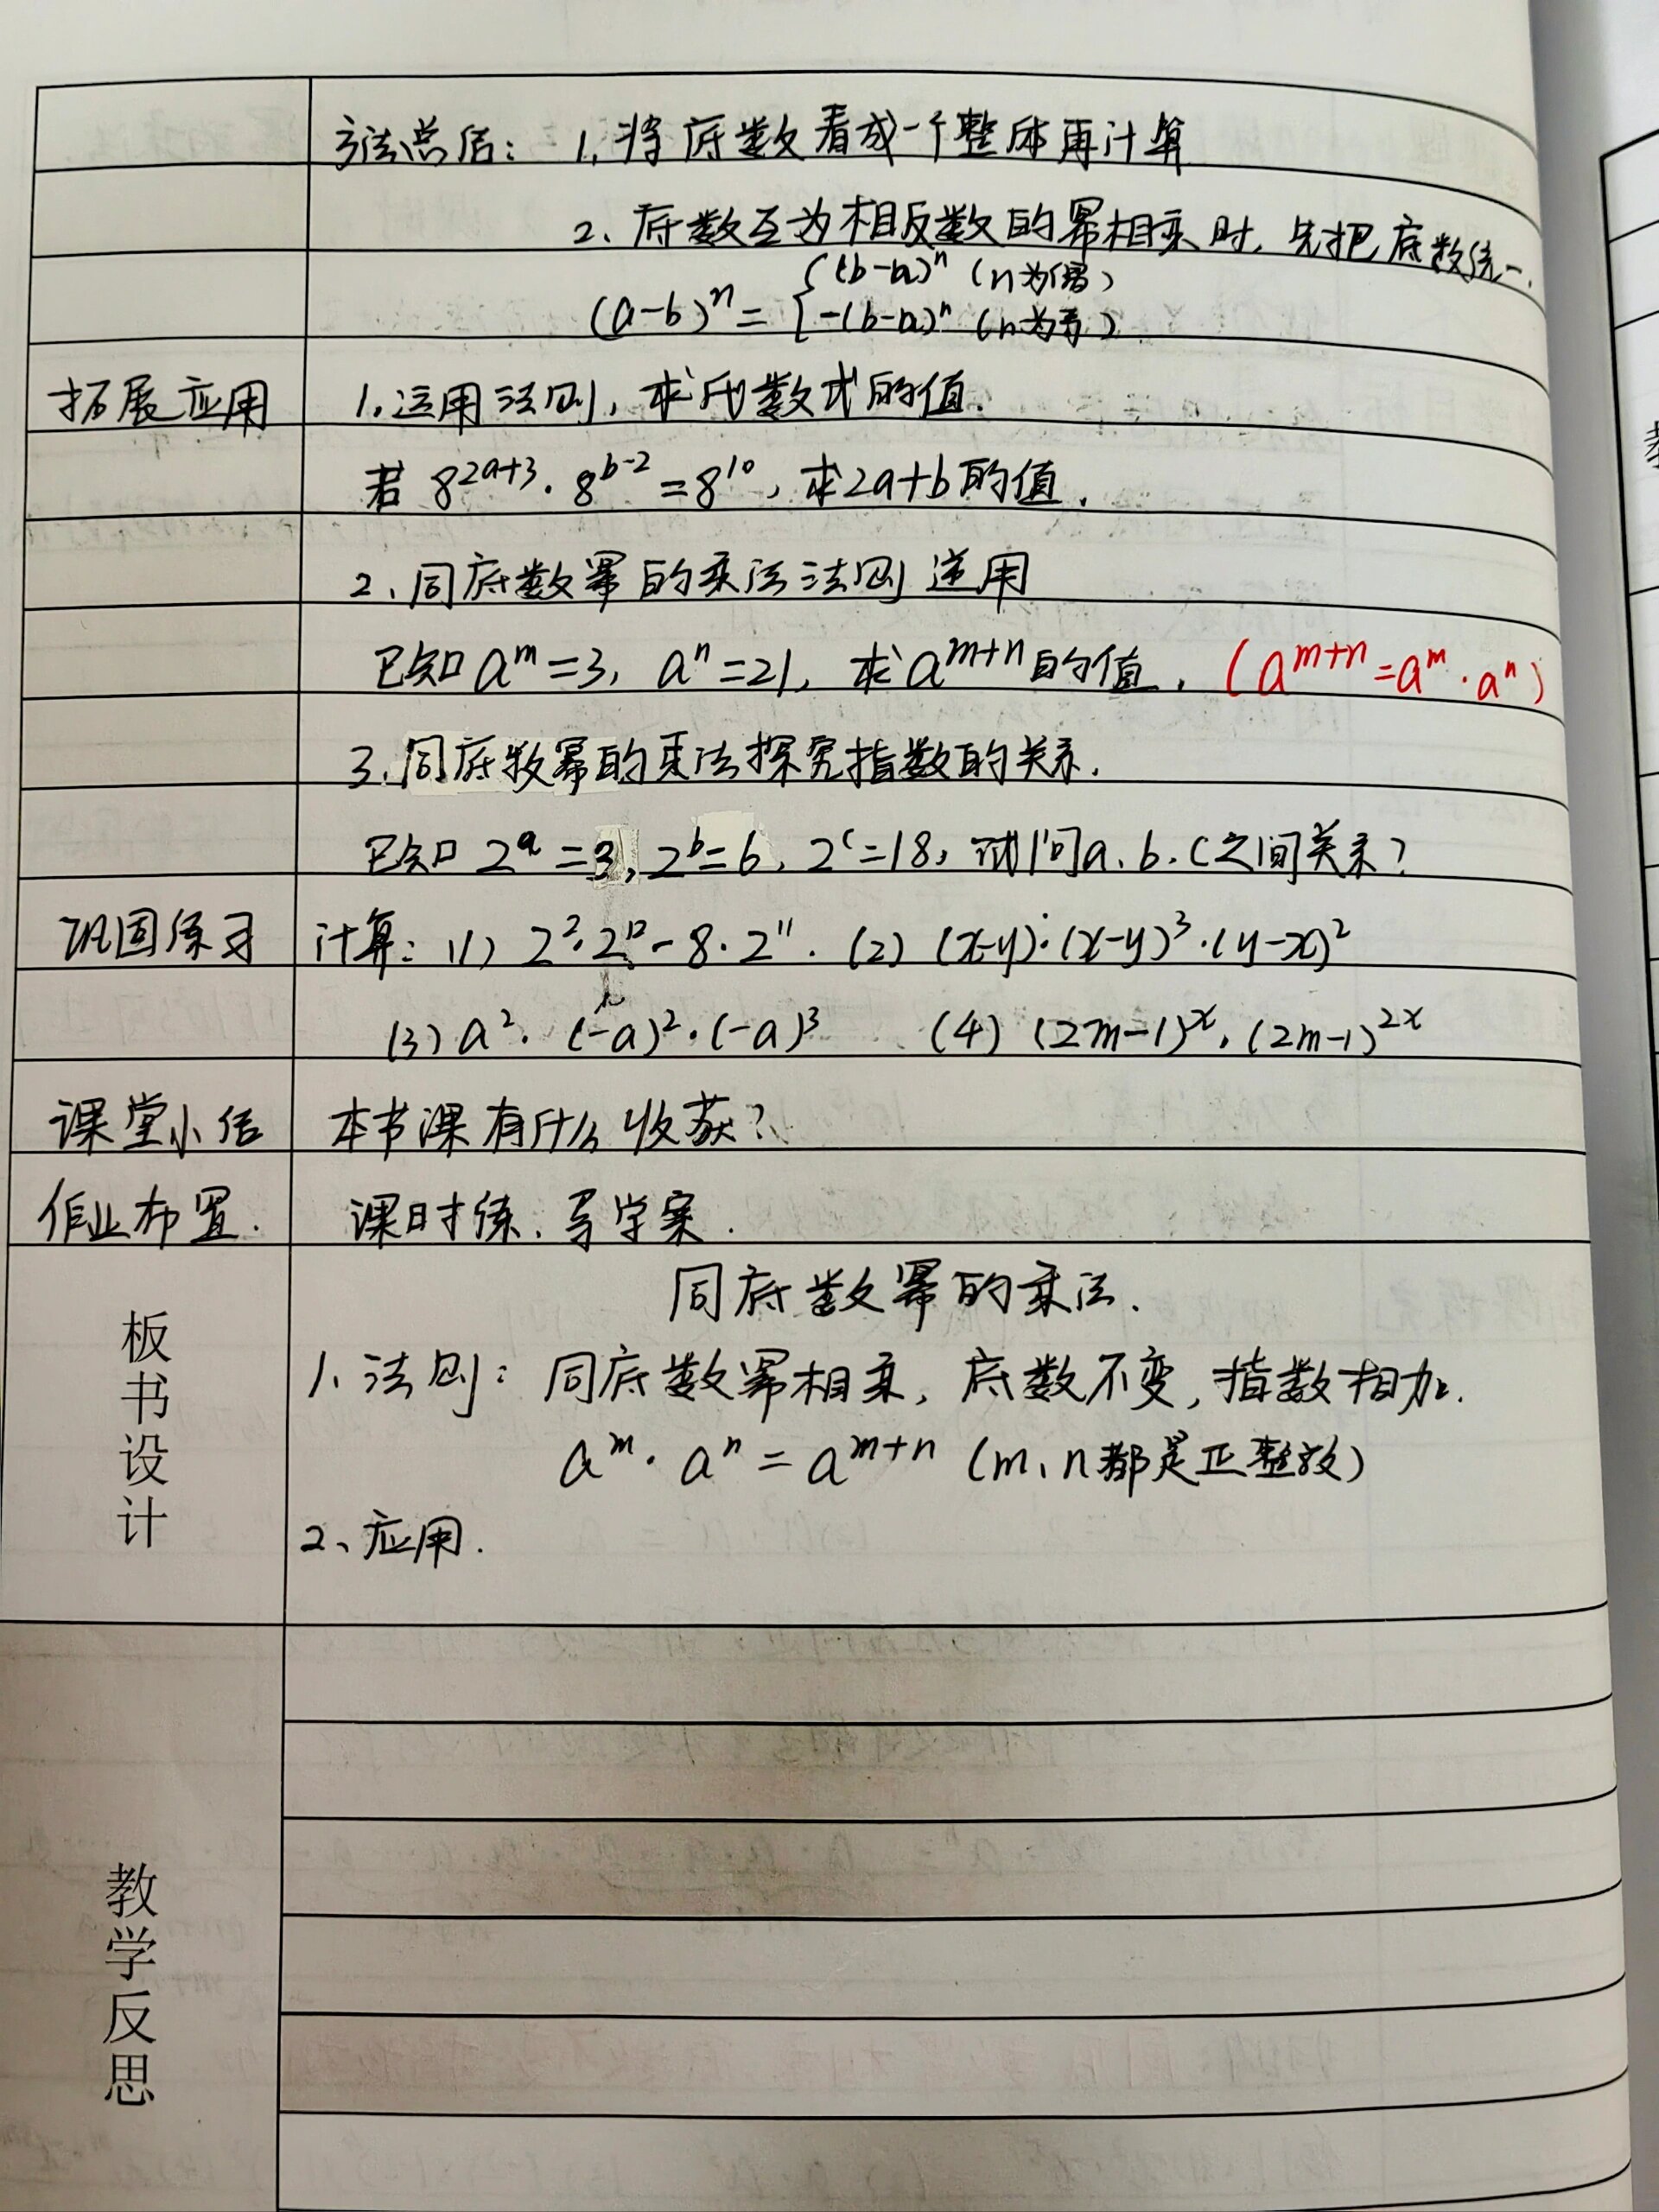 方法总结：1、将底数看成一个整体再计算
2、底数互为相反数的幂相乘时，先把底数统一.
(a-b)ⁿ = { (b-a)ⁿ (n为偶)
-(b-a)ⁿ (n为奇)
拓展应用 1、运用法则，求代数式的值.
若 8²ᵃ⁺³·8ᵇ⁻²=8¹⁰，求2a+b的值.
2、同底数幂的乘法法则逆用
已知 aᵐ=3，aⁿ=21，求aᵐ⁺ⁿ的值. (aᵐ⁺ⁿ=aᵐ·aⁿ)
3、同底数幂的乘法探究指数的关系.
已知 2ᵃ=3，2ᵇ=6，2ᶜ=18，试问a、b、c之间关系？
巩固练习 计算：(1) 2²·2¹²-8·2¹¹. (2) (x-y)·(x-y)³·(y-x)²
(3) a²·(-a)²·(-a)³ (4) (2m-1)ˣ·(2m-1)²ˣ
课堂小结 本节课有什么收获？
作业布置. 课时练、导学案.
板书设计
同底数幂的乘法.
1、法则：同底数幂相乘，底数不变，指数相加.
aᵐ·aⁿ=aᵐ⁺ⁿ (m、n都是正整数)
2、应用.
教学反思